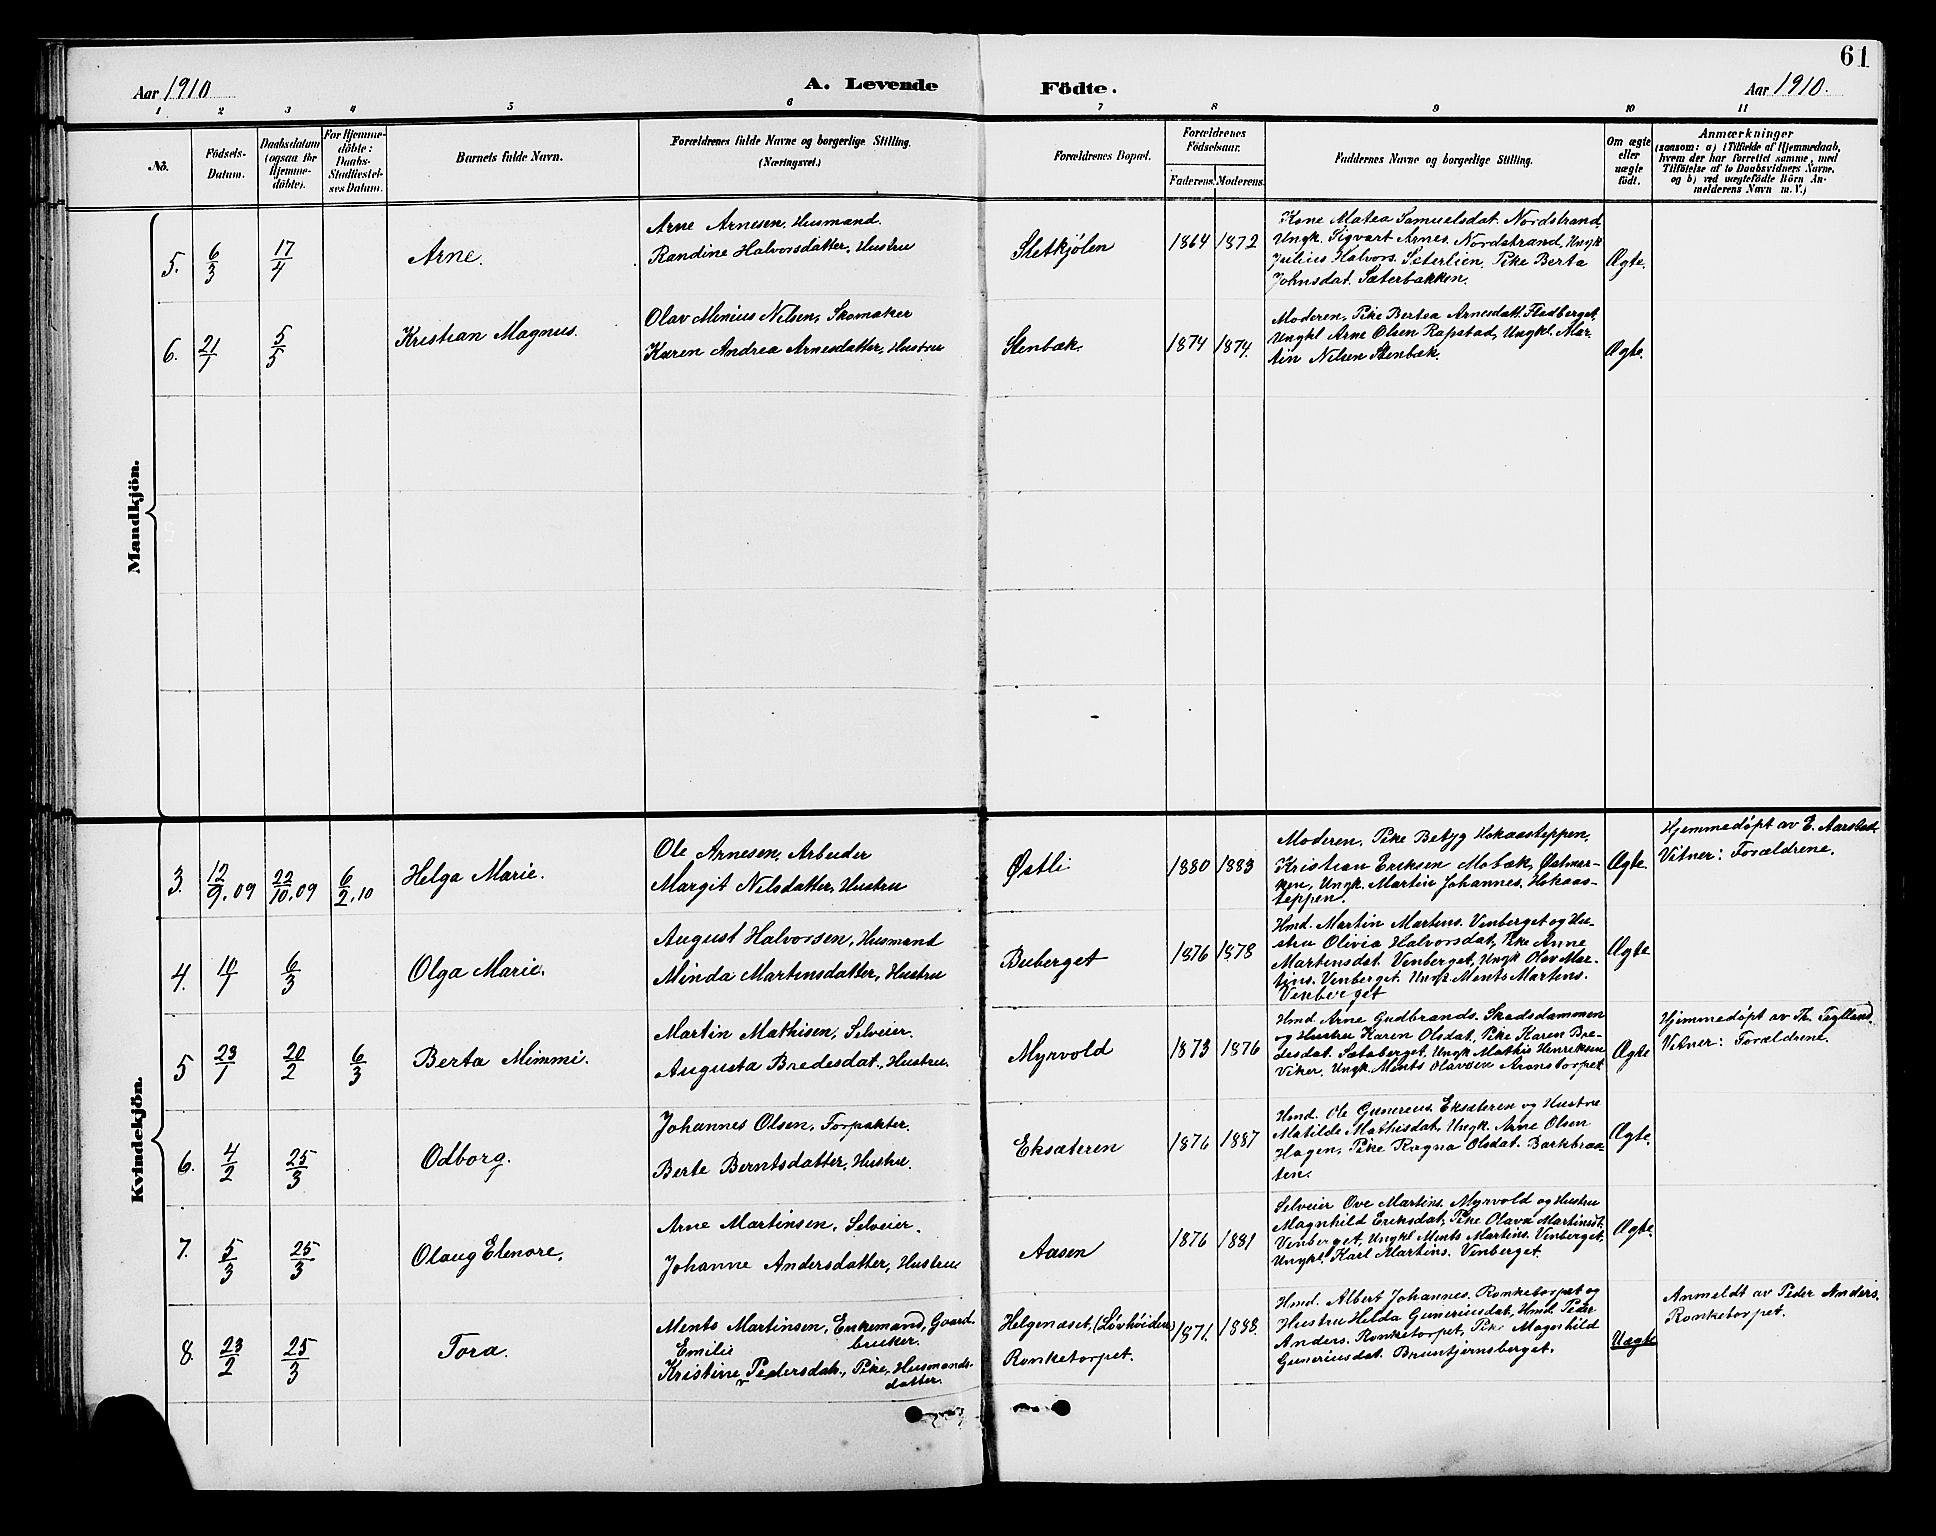 61
Aar 1910
A. Levende Födte.
Aar 1910.
1 2 3 4 5 6 7 8 9 10 11
No.
Födsels-
Datum.
Daabsdatum
(ogsaa for
Hjemme-
döbte).
For Hjemme-
döbte:
Daabs-
Stadfæstel-
ses Datum.
Barnets fulde Navn.
Forældrenes fulde Navne og borgerlige Stilling.
(Næringsvei.)
Forældrenes Bopæl.
Forældrenes
Födselsaar.
Faderens. Moderens.
Faddernes Navne og borgerlige Stilling.
Om ægte
eller
uægte
födt.
Anmærkninger
(saasom: a) i Tilfælde af Hjemmedaab,
hvem der har forrettet samme, med
Tilföielse af to Daabsvidners Navne,
og b) ved uægtefödte Börn An-
melderens Navn m. V.)
Mandkjön.
5. 6/3 17/4
Arne.
Arne Arnesen, Husmand.
Randine Halvorsdatter, Hustru
Sletkjølen
1864 1872
Kone Matea Samuelsdat. Nordstrand,
Ungk. Sigvart Arnes. Nordstrand, Ungk
Julius Halvors. Sæterlien, Pike Berta
Johnsdat. Sæterbakken.
Ægte.
6. 21/1 5/5
Kristian Magnus.
Olav Minius Nilsen, Skomaker
Karen Andrea Arnesdatter, Hustru
Stenbæk.
1874 1874.
Moderen, Pike Bertea Arnesdatt. Fladberget,
Ungkl Arne Olsen Rapstad, Ungkl. Mar-
tin Nilsen Stenbæk.
Ægte.
Kvindekjön.
3. 12/9.09 22/10.09 6/2.10
Helga Marie.
Ole Arnesen, Arbeider
Margit Nilsdatter, Hustru
Østli
1880 1883
Moderen, Pike Betzy Hokaasteppen,
Kristian Eriksen Mobæk, Østmar-
ken, Ungk. Martin Johannes. Hokaas-
teppen.
Ægte.
Hjemmedøpt av E. Aarstad.
Vitner: Forældrene.
4. 10/1 6/3
Olga Marie.
August Halvorsen, Husmand
Minda Martensdatter, Hustru
Buberget
1876 1878
Hmd. Martin Martens. Venberget og Hu-
stru Olivia Halvorsdat, Pike Anne
Martensdat. Venberget, Ungk Olav Mar-
tins. Venberget. Ungk. Ments Martens.
Venberget
Ægte
5 23/1 20/2 6/3
Berta Mimmi.
Martin Mathisen, Selveier.
Augusta Bredesdat., Hustru.
Myrvold
1873 1876
Hmd. Arne Gudbrands. Skadsdammen
og Hustru Karen Olsdat, Pike Karen Bre-
desdat. Sætaberget, Ungk Mathis Henriksen
Viker, Ungk. Ments Olavsen Aronstorpet
Ægte
Hjemmedøpt av Th.
Vitner: Forældrene.
6. 4/2 25/3
Odborg.
Johannes Olsen, Forpakter.
Berte Berntsdatter, Hustru.
Eksæteren
1876 1887
Hmd. Ole Gunereus. Eksæteren og Hustru
Matilde Mathisdat, Ungk. Arne Olsen
Hagen, Pike Ragna Olsdat. Barkbraa-
ten.
Ægte.
7. 5/3 25/3
Olaug Elenore.
Arne Martinsen, Selveier.
Johanne Andersdatter, Hustru
Aasen
1876 1881
Selveier Ove Martins. Myrvold og Hustru
Magnhild Eriksdat, Pike Olava Martinsd.
Venberget, Ungkl Ments Martins. Venberget,
Ungkl. Karl Martins. Venberget.
Ægte.
8. 23/2 25/3
Tora.
Ments Martinsen, Enkemand, Gaard-
bruker.
Emilie
Kristine Pedersdat., Pike, Husmands-
datter.
Helgenæset, (Løvhøiden)
Ronketorpet.
1871. 1888.
Hmd. Albert Johannes. Ronketorpet og
Hustru Helda Guneriusdat, Hmd. Peder
Anders. Ronketorpet, Pike Magnhild
Guneriusdat. Bruntjernsberget.
Uægte
Anmeldt av Peder Anders.
Ronketorpet.